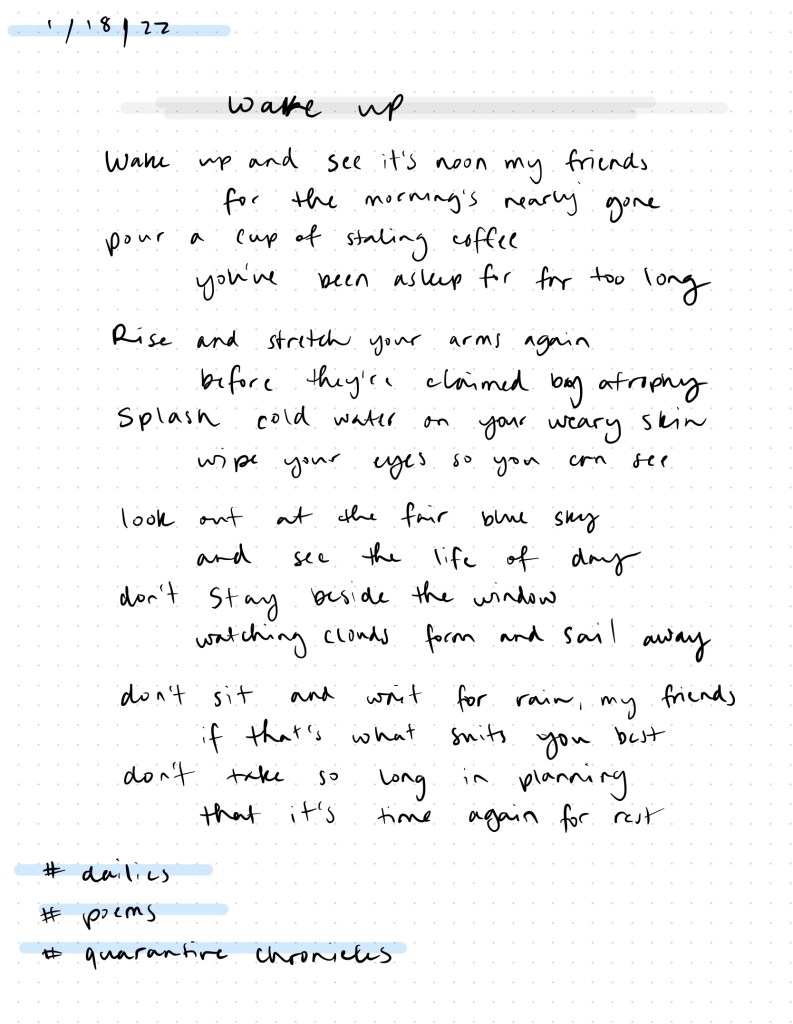 1/18/22
Wake up
Wake up and see it's noon my friends
for the morning's nearly gone
pour a cup of staling coffee
you've been asleep for far too long
Rise and stretch your arms again
before they're claimed by atrophy
Splash cold water on your weary skin
wipe your eyes so you can see
look out at the fair blue sky
and see the life of day
don't stay beside the window
watching clouds form and sail away
don't sit and wait for rain, my friends
if that's what suits you best
don't take so long in planning
that it's time again for rest
# dailies
# poems
# quarantine chronicles